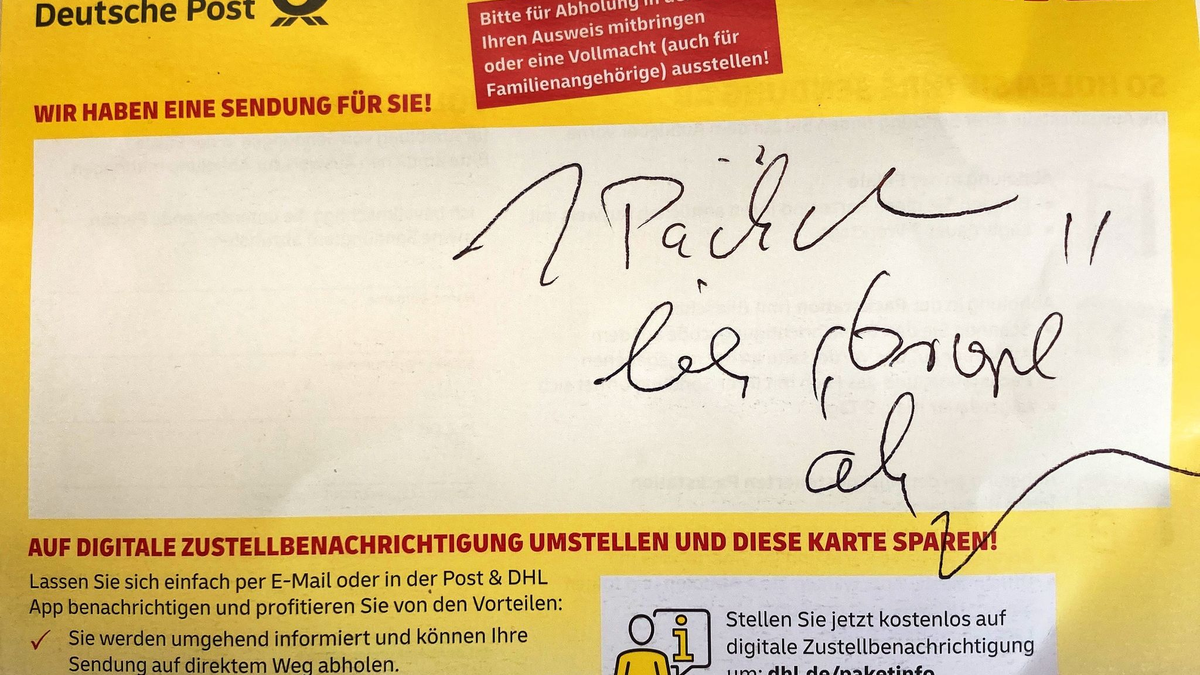 Deutsche Post
Bitte für Abholung in
Ihren Ausweis mitbringen
oder eine Vollmacht (auch für
Familienangehörige) ausstellen!
WIR HABEN EINE SENDUNG FÜR SIE!
1 Päck
bei
ab
AUF DIGITALE ZUSTELLBENACHRICHTIGUNG UMSTELLEN UND DIESE KARTE SPAREN!
Lassen Sie sich einfach per E-Mail oder in der Post & DHL
App benachrichtigen und profitieren Sie von den Vorteilen:
✓ Sie werden umgehend informiert und können Ihre
Sendung auf direktem Weg abholen.
i
Stellen Sie jetzt kostenlos auf
digitale Zustellbenachrichtigung
um: dhl.de/paketinfo